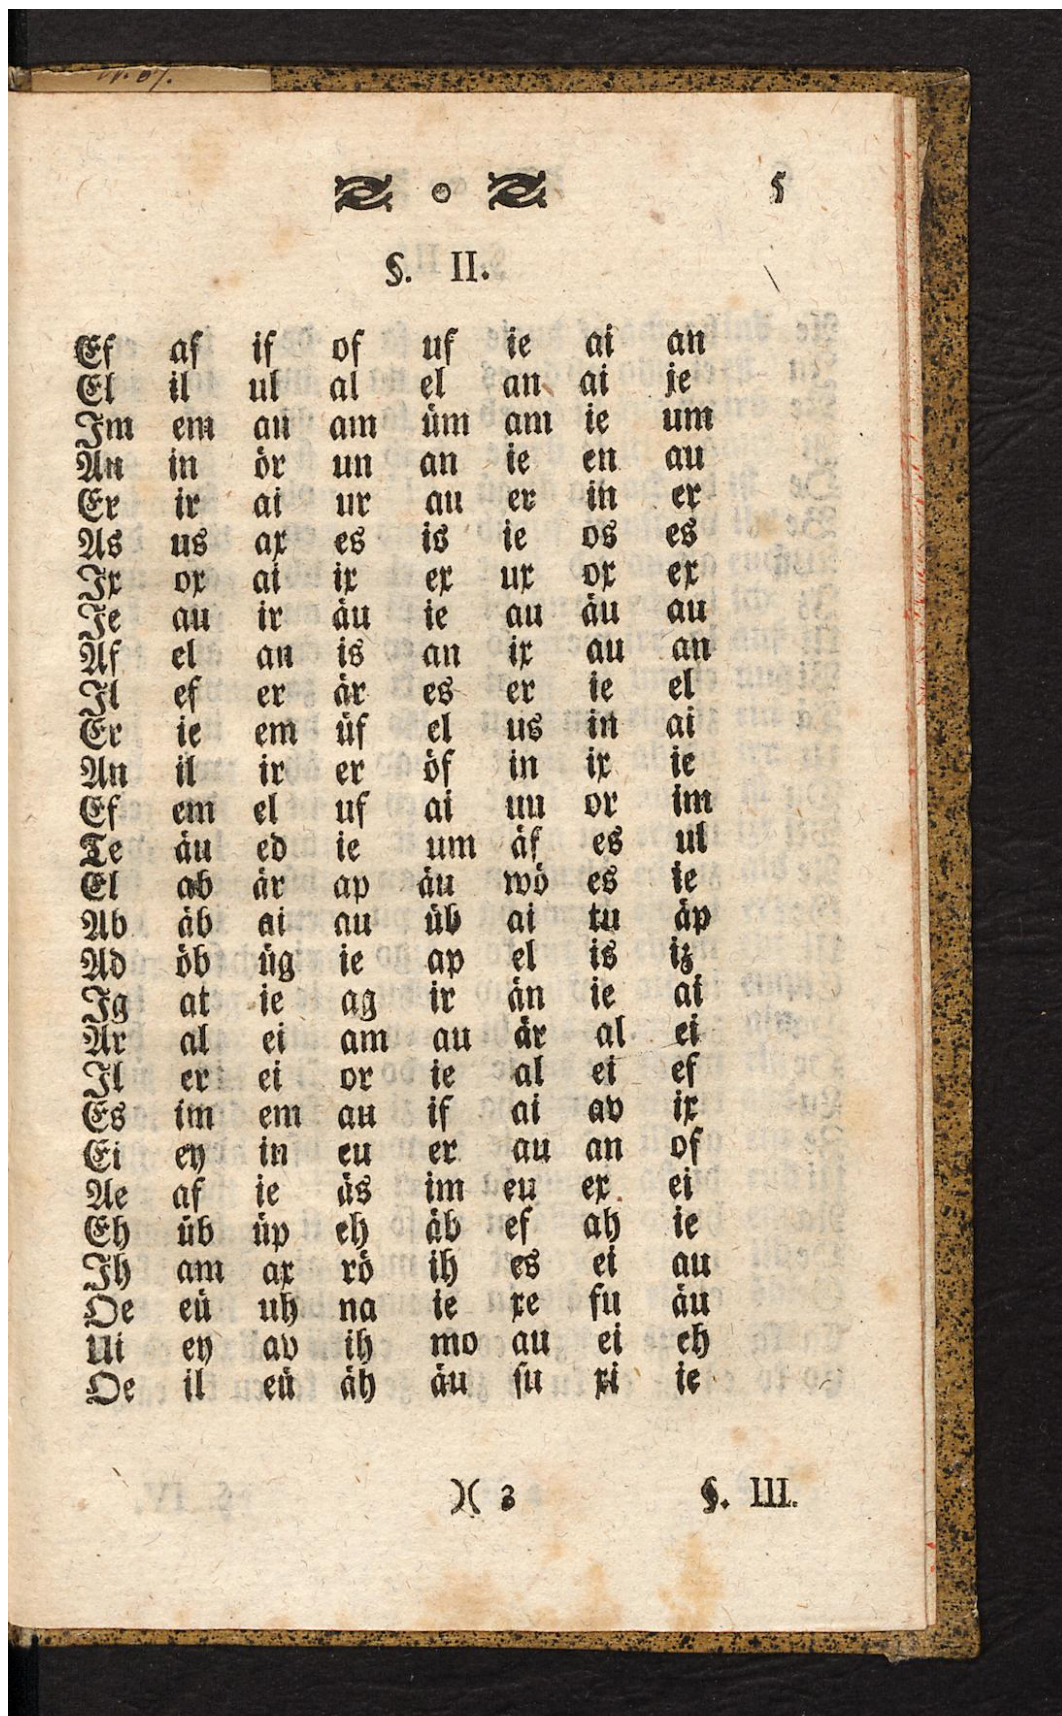 5
§. II.
Ef af if of uf ie ai an
El il ul al el an ai je
Im em au am üm am ie um
An in ör un an ie en au
Er ir ai ur au er in er
As us ax es is ie os es
Ix ox ai ix ex ux ox ex
Ie au ir äu ie au äu au
Af el an is an ix au an
Il ef er är es er ie el
Er ie em üf el us in ai
An il ir er öf in ix ie
Ef em el uf ai un or im
Te äu ed ie um äf es ul
El ab är ap äu wö es ie
Ab äb ai au üb ai tu äp
Ad öb üg ie ap el is iz
Ig at ie ag ir än ie ai
Ar al ei am au är al ei
Il er ei or ie al ei ef
Es im em au if ai av ix
Ei ey in eu er au an of
Ae af ie äs im eu ex. ei
Eh üb üp eh äb ef ah ie
Ih am ax rö ih es ei au
Oe eü uh na ie xe fu äu
Ui ey av ih mo au ei eh
Oe il eü äh äu ſu xi ie
)( 3 §. III.